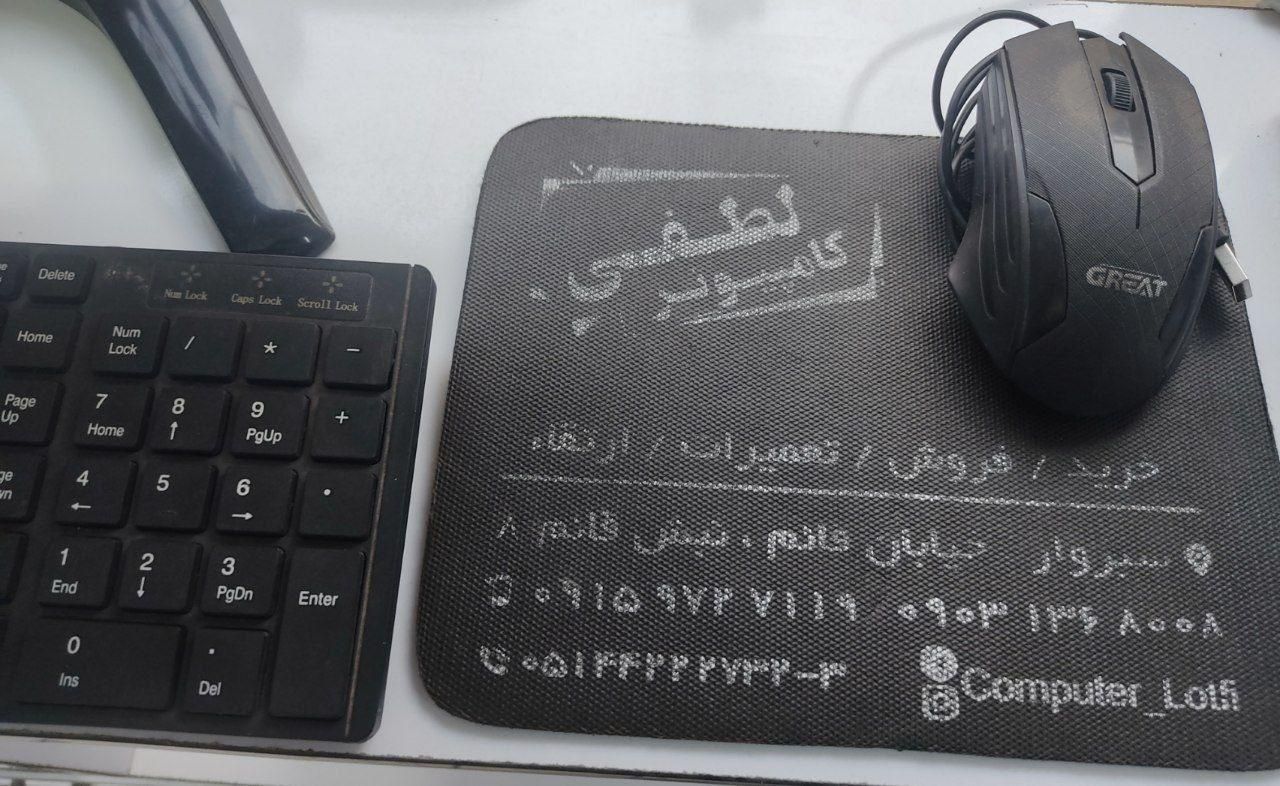 Delete
Num Lock
Caps Lock
Scroll Lock
Home
Num Lock
/
*
-
Page Up
7 Home
8 ↑
9 PgUp
+
4 ←
5
6 →
.
1 End
2 ↓
3 PgDn
Enter
0 Ins
. Del
GREAT
لطفی
کامپیوتر
خرید / فروش / تعمیرات / ارتقاء
سبزوار خیابان قائم ، نبش قائم ۸
۰۹۱۵ ۹۷۲ ۷۱۱۹ ۰۹۰۳ ۱۳۶ ۸۰۰۸
۰۵۱۴۴۲۲۲۷۳۲-۳
Computer_Lotfi